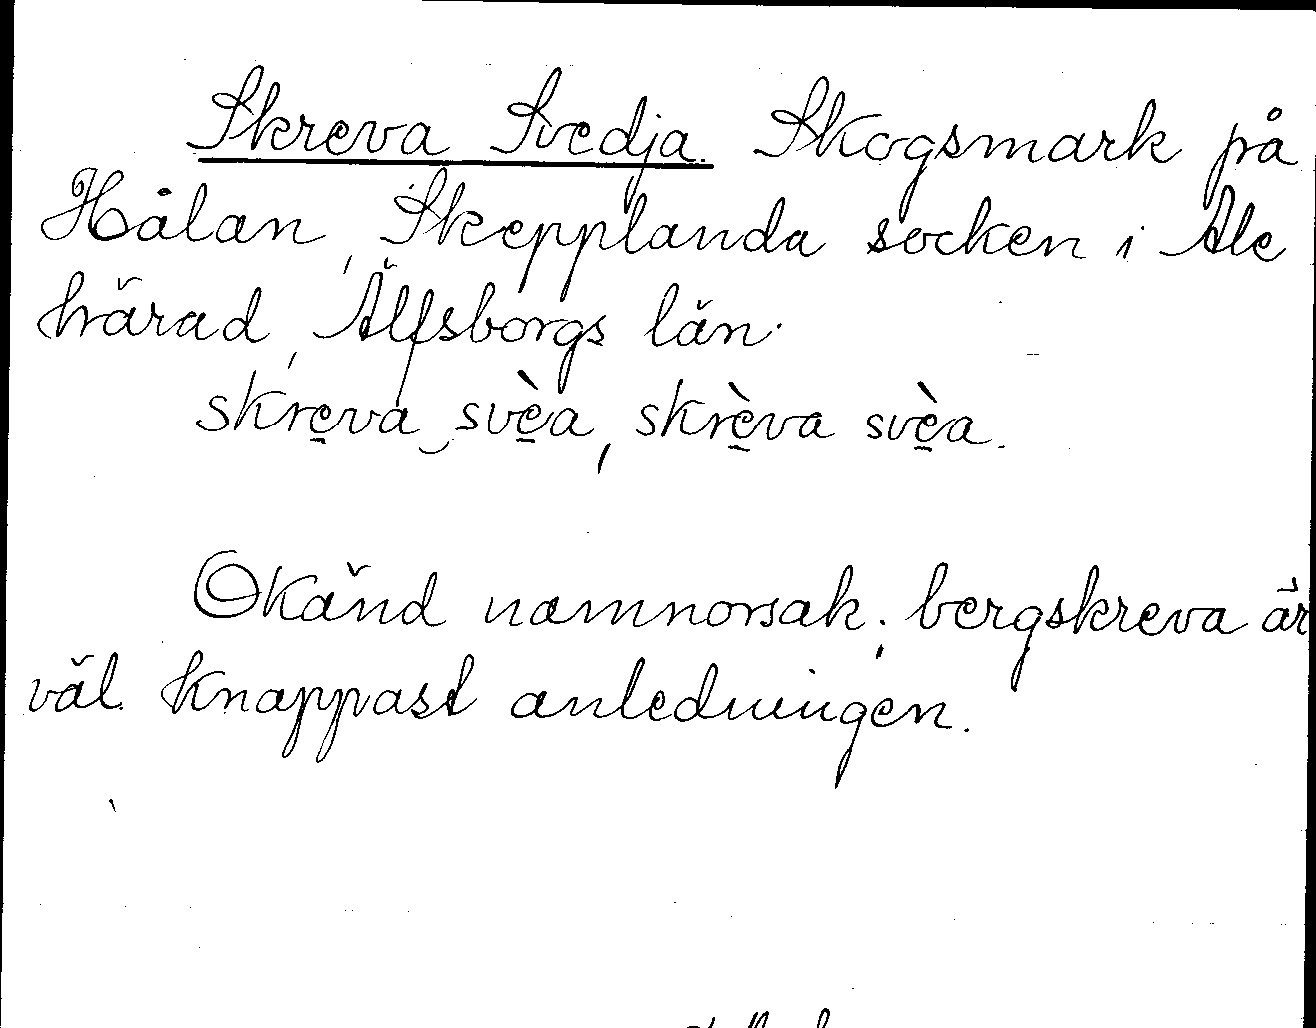 Skreva Svedja. Skogsmark på
Hålan, Skepplanda socken i Ale
härad, Älfsborgs län.
skre̱va‿svè̱a, skrè̱va svè̱a.
Okänd namnorsak; bergskreva är
väl knappast anledningen.